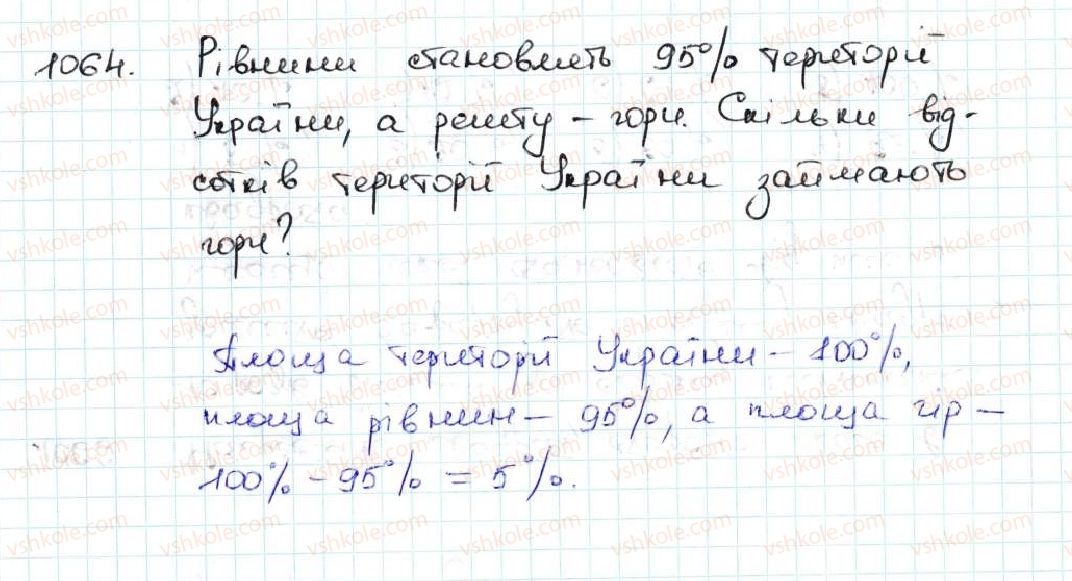 1064. Рівнини становлять 95% території
України, а решту – гори. Скільки від-
сотків території України займають
гори?
Площа території України – 100%,
площа рівнин – 95%, а площа гір –
100% – 95% = 5%.